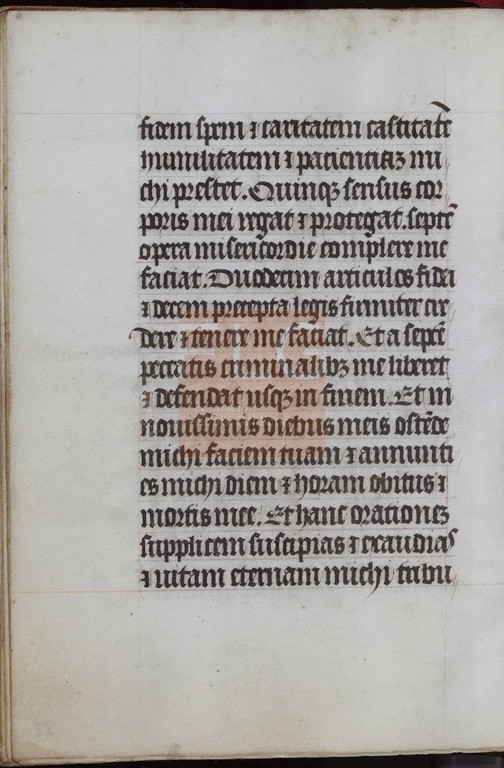 fidem spem ⁊ caritatem castitatē
humilitatem ⁊ pacientiaꝫ mi
chi prestet. Quinqꝫ sensus cor
poris mei regat ⁊ protegat. septē
opera misericordie complere me
faciat. Duodecim articulos fidei
⁊ decem precepta legis firmiter cre
dere ⁊ tenere me faciat. Et a septē
peccatis criminalibꝫ me liberet
⁊ defendat usqꝫ in finem. Et in
nouissimis diebus meis ostēde
michi faciem tuam ⁊ annunti
es michi diem ⁊ horam obitus ⁊
mortis mee. Et hanc orationeꝫ
supplicem suscipias ⁊ exaudias
⁊ uitam eternam michi tribu